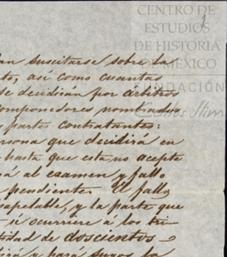 CENTRO DE
ESTUDIOS
DE HISTORIA
DE MÉXICO
an suscitarse sobre la
to, así como cuantas
se decidirán por árbitros
componedores nombrados
parte contratantes:
rsona que decidirá en
hasta que esta no acepte
rá al examen y fallo
pendiente. El fallo
apelable, y la parte que
si ocurriere á los tri
tidad de doscientos